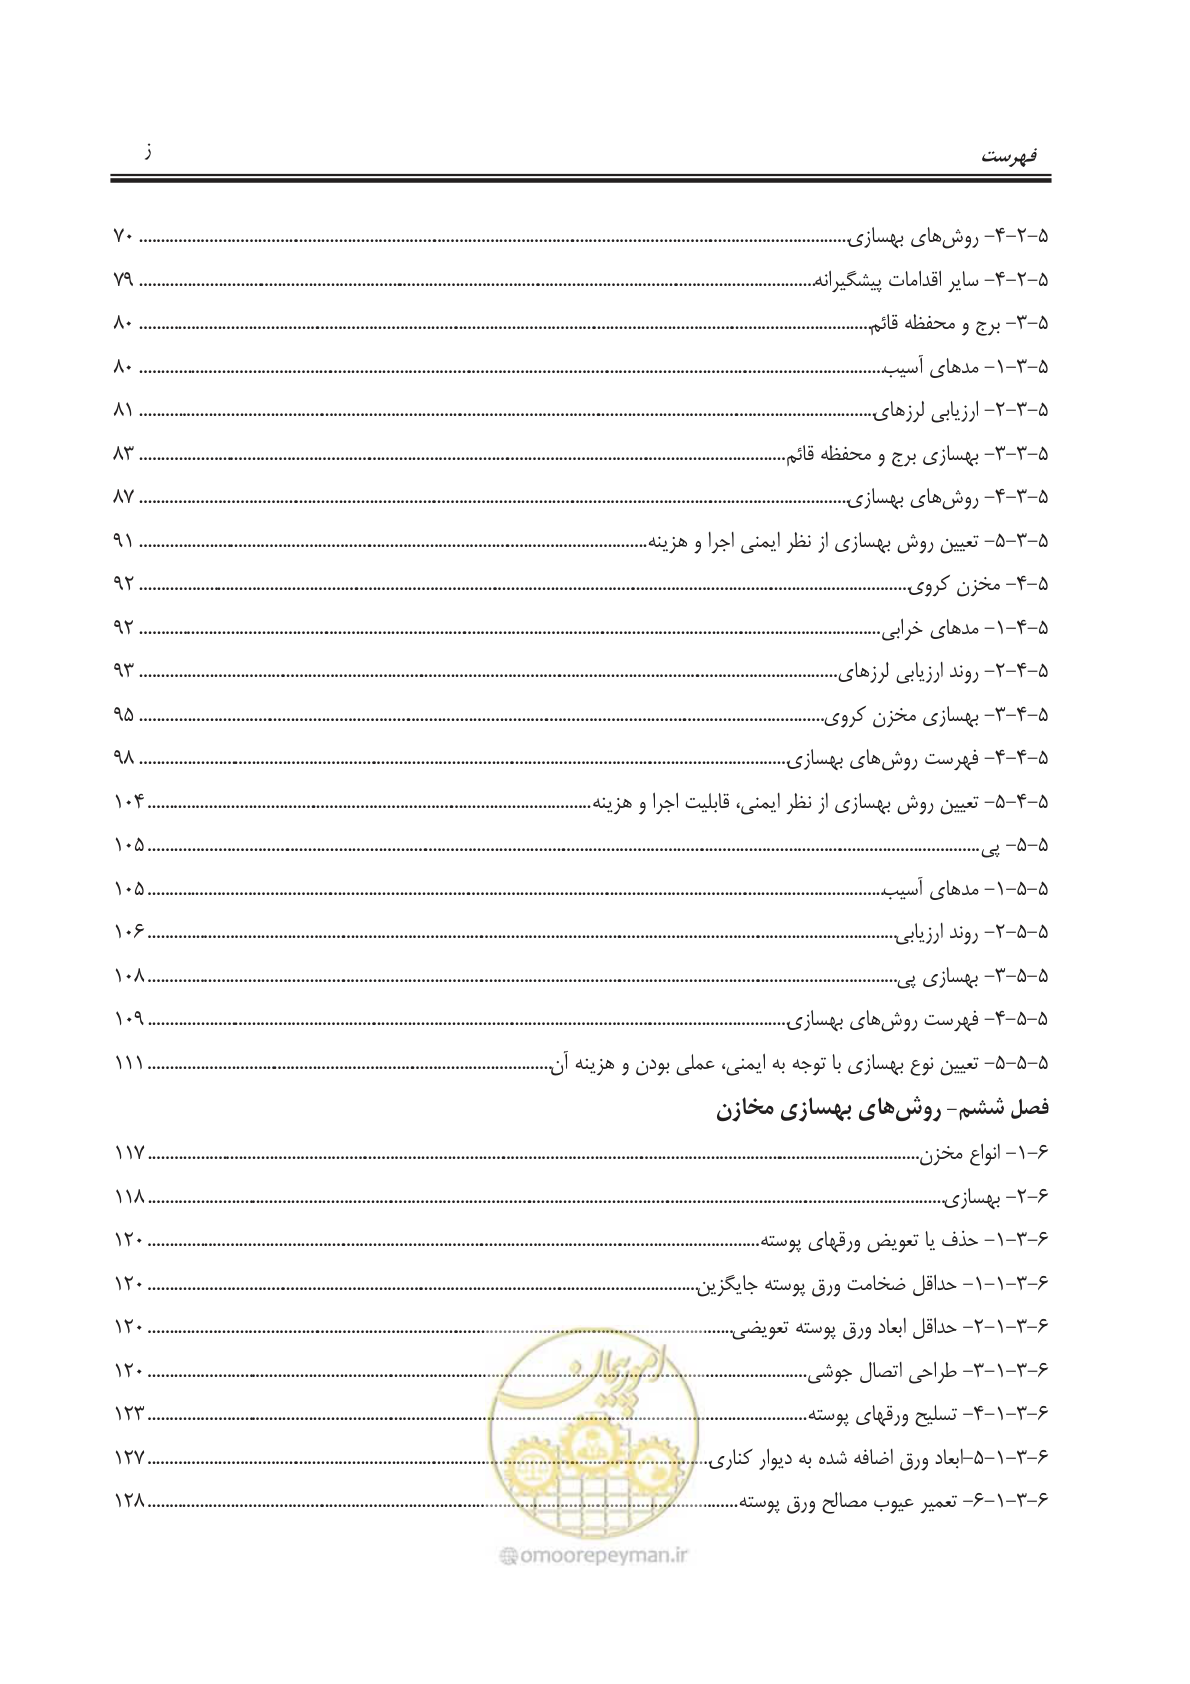 فهرست ز
۵-۲-۴- روش‌های بهسازی ۷۰
۵-۲-۴- سایر اقدامات پیشگیرانه ۷۹
۵-۳- برج و محفظه قائم ۸۰
۵-۳-۱- مدهای آسیب ۸۰
۵-۳-۲- ارزیابی لرزهای ۸۱
۵-۳-۳- بهسازی برج و محفظه قائم ۸۳
۵-۳-۴- روش‌های بهسازی ۸۷
۵-۳-۵- تعیین روش بهسازی از نظر ایمنی اجرا و هزینه ۹۱
۵-۴- مخزن کروی ۹۲
۵-۴-۱- مدهای خرابی ۹۲
۵-۴-۲- روند ارزیابی لرزهای ۹۳
۵-۴-۳- بهسازی مخزن کروی ۹۵
۵-۴-۴- فهرست روش‌های بهسازی ۹۸
۵-۴-۵- تعیین روش بهسازی از نظر ایمنی، قابلیت اجرا و هزینه ۱۰۴
۵-۵- پی ۱۰۵
۵-۵-۱- مدهای آسیب ۱۰۵
۵-۵-۲- روند ارزیابی ۱۰۶
۵-۵-۳- بهسازی پی ۱۰۸
۵-۵-۴- فهرست روش‌های بهسازی ۱۰۹
۵-۵-۵- تعیین نوع بهسازی با توجه به ایمنی، عملی بودن و هزینه آن ۱۱۱
فصل ششم- روش‌های بهسازی مخازن
۶-۱- انواع مخزن ۱۱۷
۶-۲- بهسازی ۱۱۸
۶-۳-۱- حذف یا تعویض ورقهای پوسته ۱۲۰
۶-۳-۱-۱- حداقل ضخامت ورق پوسته جایگزین ۱۲۰
۶-۳-۱-۲- حداقل ابعاد ورق پوسته تعویضی ۱۲۰
۶-۳-۱-۳- طراحی اتصال جوشی ۱۲۰
۶-۳-۱-۴- تسلیح ورقهای پوسته ۱۲۳
۶-۳-۱-۵-ابعاد ورق اضافه شده به دیوار کناری ۱۲۷
۶-۳-۱-۶- تعمیر عیوب مصالح ورق پوسته ۱۲۸
امور پیمان
@omoorepeyman.ir